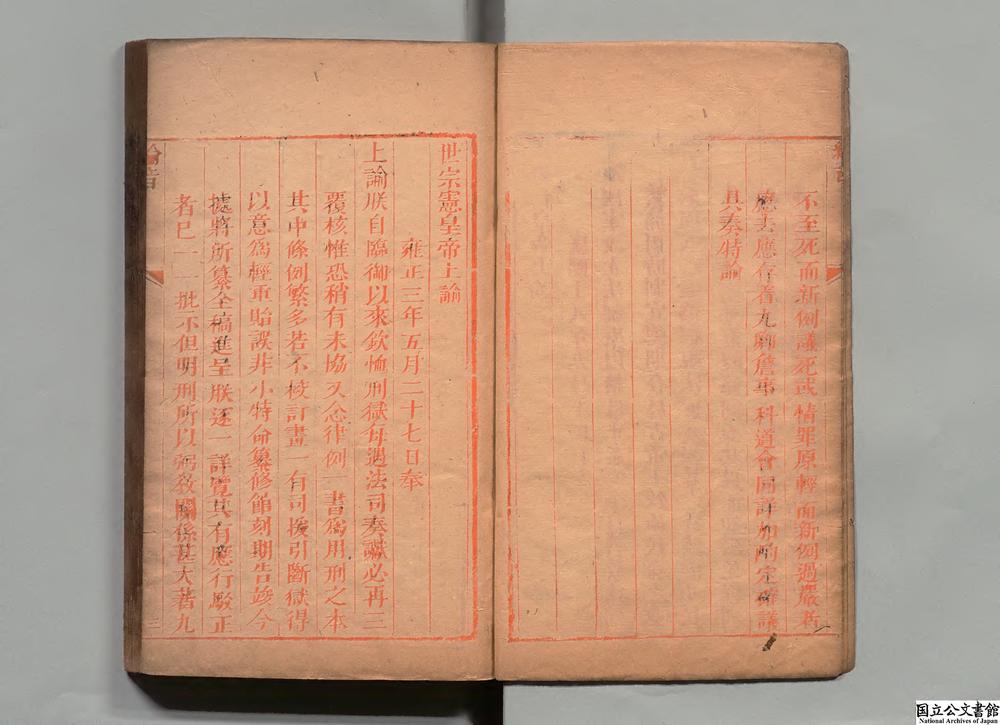 不至死而新例議死或情罪原輕而新例過嚴者
應去應存著九卿詹事科道會同詳加酌定確議
具奏特諭
世宗憲皇帝上諭
雍正三年五月二十七日奉
上諭朕自臨御以來欽恤刑獄每遇法司奏讞必再三
覆核惟恐稍有未協又念律例一書爲用刑之本
其中條例繁多若不校訂畫一有司援引斷獄得
以意爲輕重貽誤非小特命纂修館刻期告竣今
據將所纂全稿進呈朕逐一詳覽其有應行駁正
者已一一批示但明刑所以弼敎關係甚大著九
三
国立公文書館
National Archives of Japan